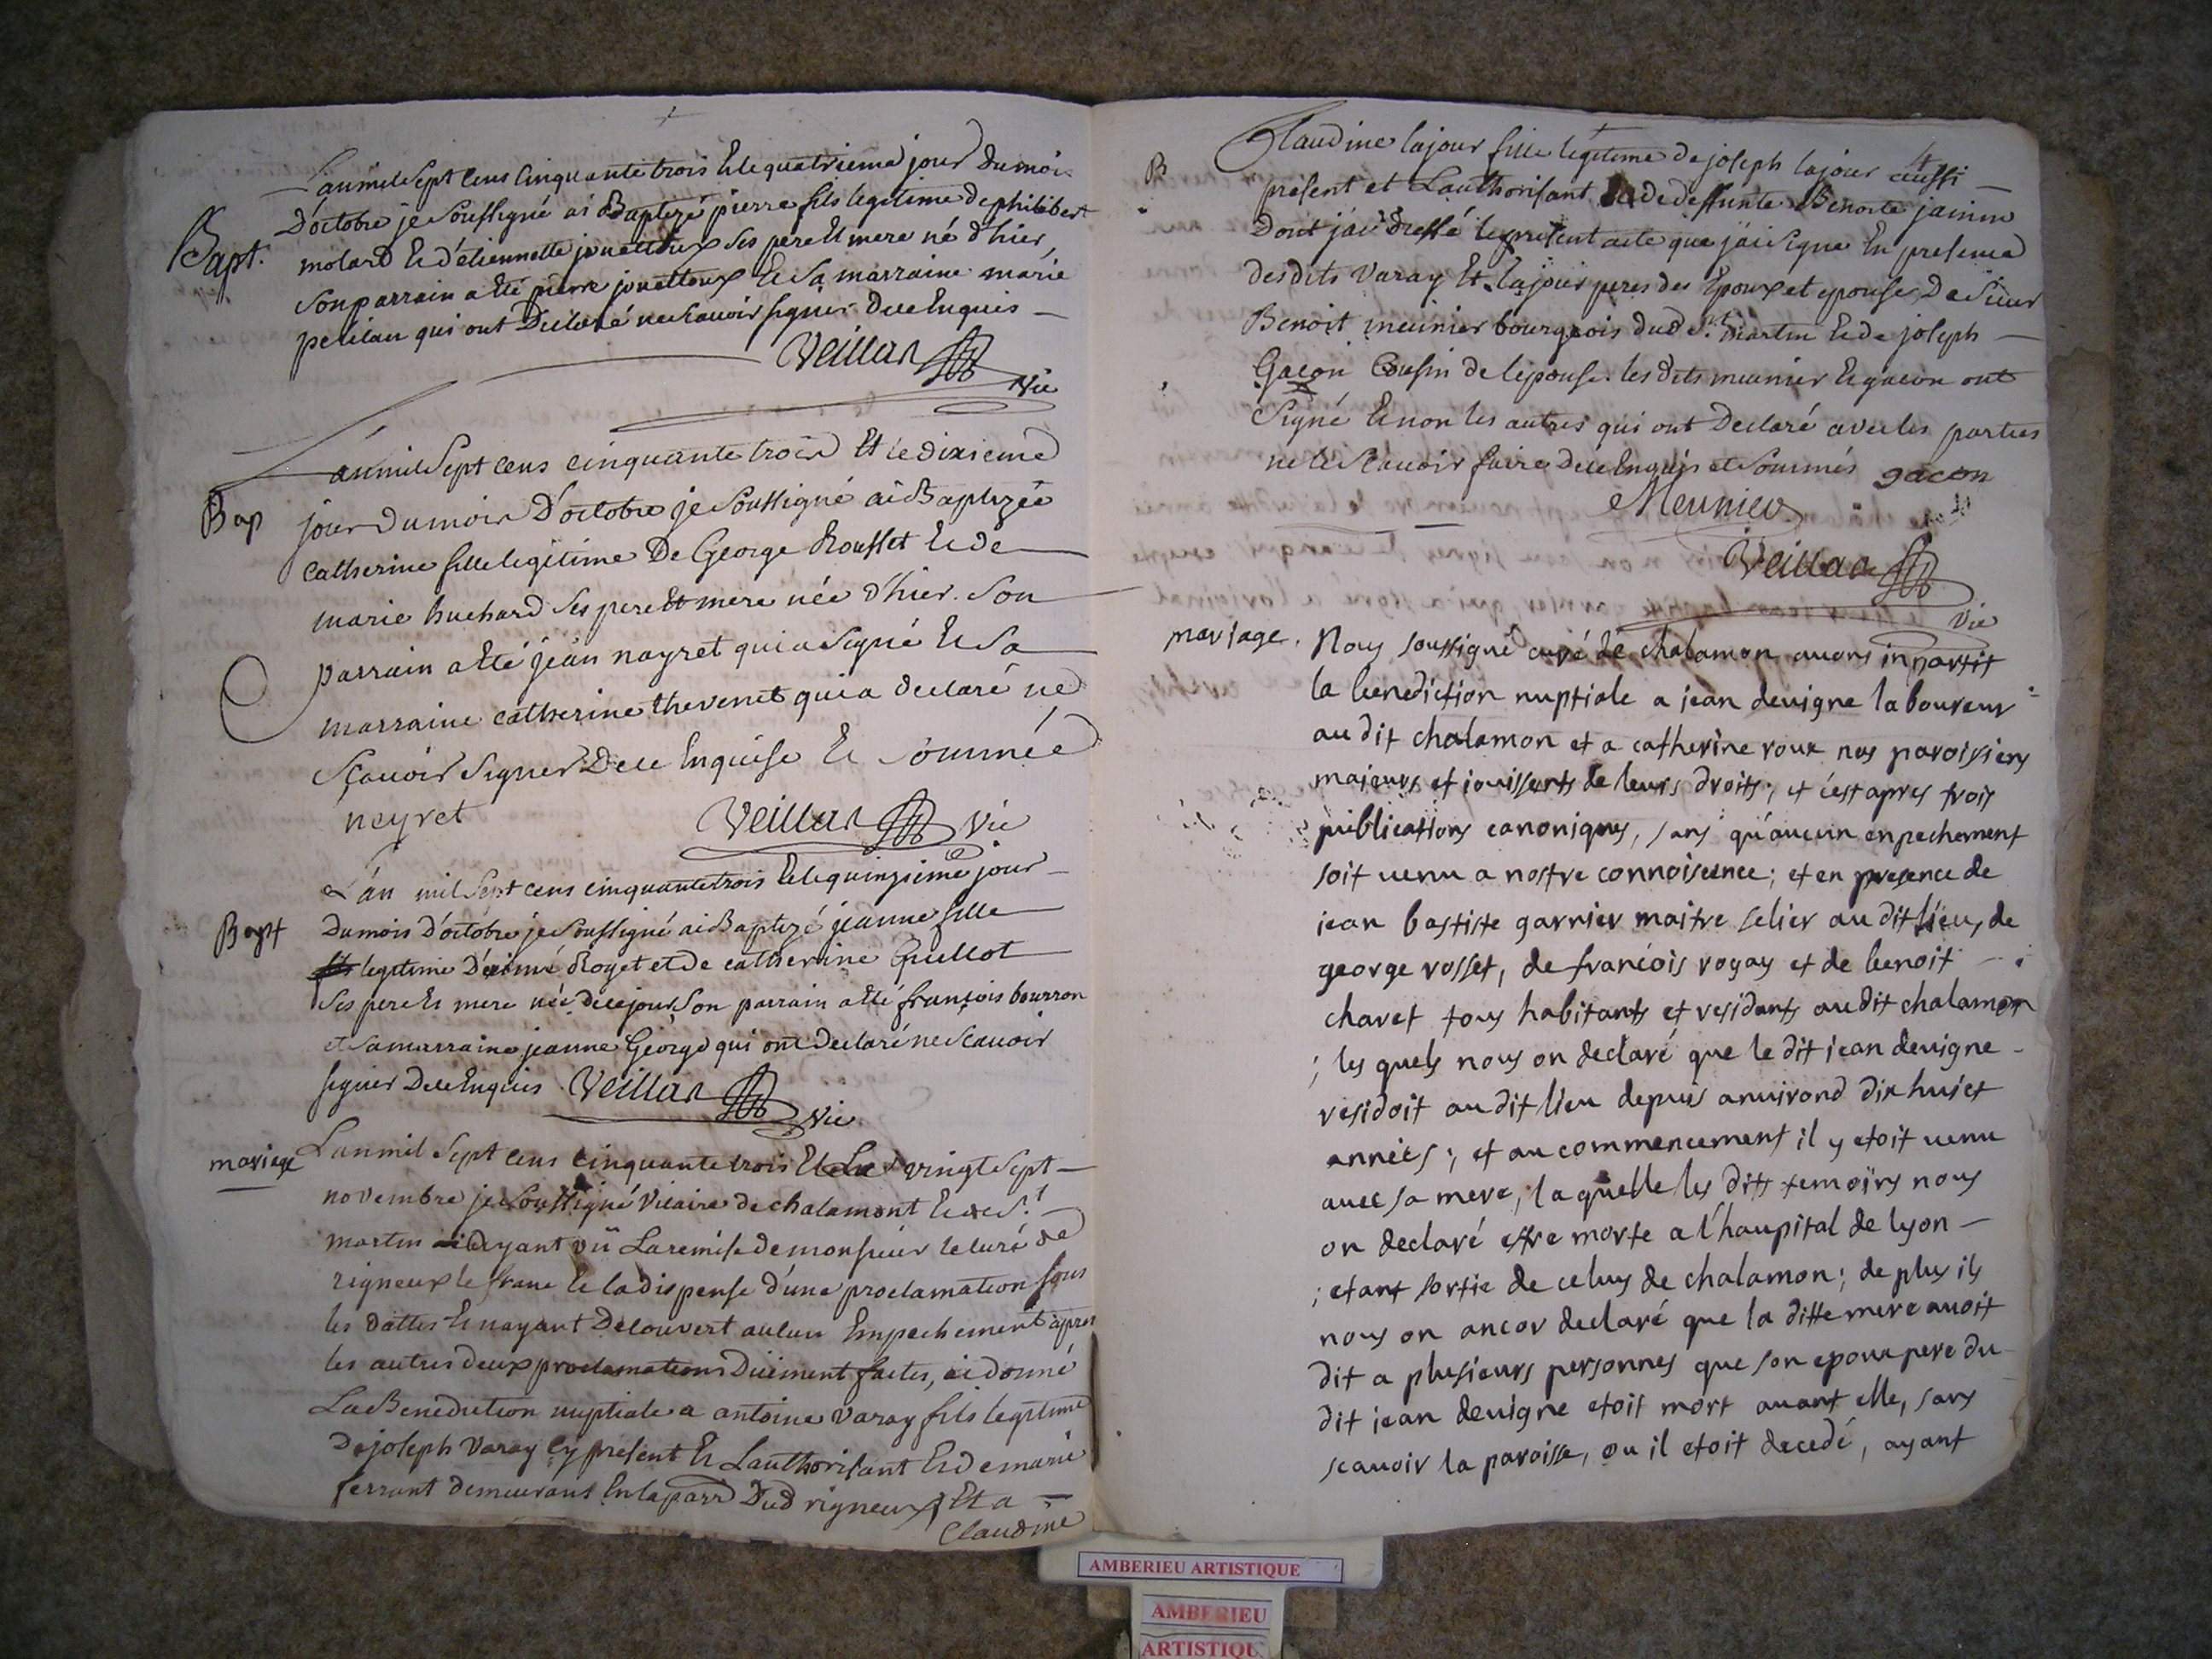 L'an mil sept cens cinquante trois et le quatrieme jour du moi
Bapt.
D'octobre je soussigné ai Baptizé pierre fils legitime de philibert
molard et d'étiennette jouetteux ses pere et mere né d'hier
son parrain a eté pierre jouetteux et sa marraine marie
qui ont Declaré ne scauoir signer De ce Enquis —
Veillar
Vic
L'an mil sept cens cinquante trois Et le dixieme
Bap
jour du mois D'octobre je soussigné ai Baptizée
Catherine fille legitime De George Rousset et de
marie huchard ses pere et mere née d'hier. Son
parrain a eté jean nayret qui a signé et Sa
marraine catherine thevenet qui a declaré ne
sçauoir signer De ce Enquise et sommée
neyret Veillar Vic
L'an mil sept cens cinquante trois et le quinzieme jour
Bapt
du mois D'octobre je soussigné ai Baptizé jeanne fille
legitime Royet et de catherine Guillot
ses pere et mere née de ce jour Son parrain a eté françois bourron
et sa marraine jeanne George qui ont declaré ne scauoir
signer De ce Enquis Veillar
Vic
mariage
L'an mil sept cens cinquante trois Et Le vingt sept —
novembre je soussigné vicaire de chalamont et de St.
martin ayant vû La remise de monsieur le curé de
rigneux le franc et la dispense d'une proclamation sous
les dattes et n'ayant Decouvert aucun Empechement après
les autres deux proclamations Düement faites, ai donné
La Benediction nuptiale a antoine varay fils legitime
De joseph varay Cy present et L'authorisant et de marie
ferrant demeurans En la parr Dud rigneux Et a —
Claudine
4
Claudine lajour fille legitime de joseph lajour aussi —
B
présent et L'authorisant de deffunte Benoite jainin
Dont j'ai dressé le present acte que j'ai signé En presence
desdits varay Et lajour peres des Epoux et epouse, De sieur
Benoit meunier bourgeois dud St. martin et de joseph —
Gacon Cousin de l'epouse. les dits meunier et gacon ont
signé et non les autres qui ont Declaré avec les parties
ne le scauoir faire de ce Enquis et sommés gacon
Meunier
Veillar
Vic
mariage.
Nous soussigné curé de chalamon auons inpartit
la benediction nuptiale a jean deuigne laboureur
au dit chalamon et a catherine roux nos paroisiens
majeurs et jouissants de leurs droits; et c'est apres trois
publications canoniques, sans qu'aucun enpechement
soit uenu a nostre connoisence; et en presence de
jean bastiste garnier maitre selier au dit lieu, de
george rosset, de francois royay et de benoit
chavet tous habitants et residants au dit chalamon
; les quels nous on declaré que le dit jean deuigne -
residoit au dit lieu depuis anuirond dix huict
annees; et au commencement il y etoit uenu
auec sa mere, la quelle les dits temoins nous
on declaré estre morte a l'haupital de lyon —
; etant sortie de celuy de chalamon; de plus ils
nous on ancor declaré que la ditte mere auoit
dit a plusieurs personnes que son epoux pere du
dit jean deuigne etoit mort auant elle, sans
scauoir la paroisse, ou il etoit decedé, ayant
AMBERIEU ARTISTIQUE
AMBERIEU
ARTISTIQU